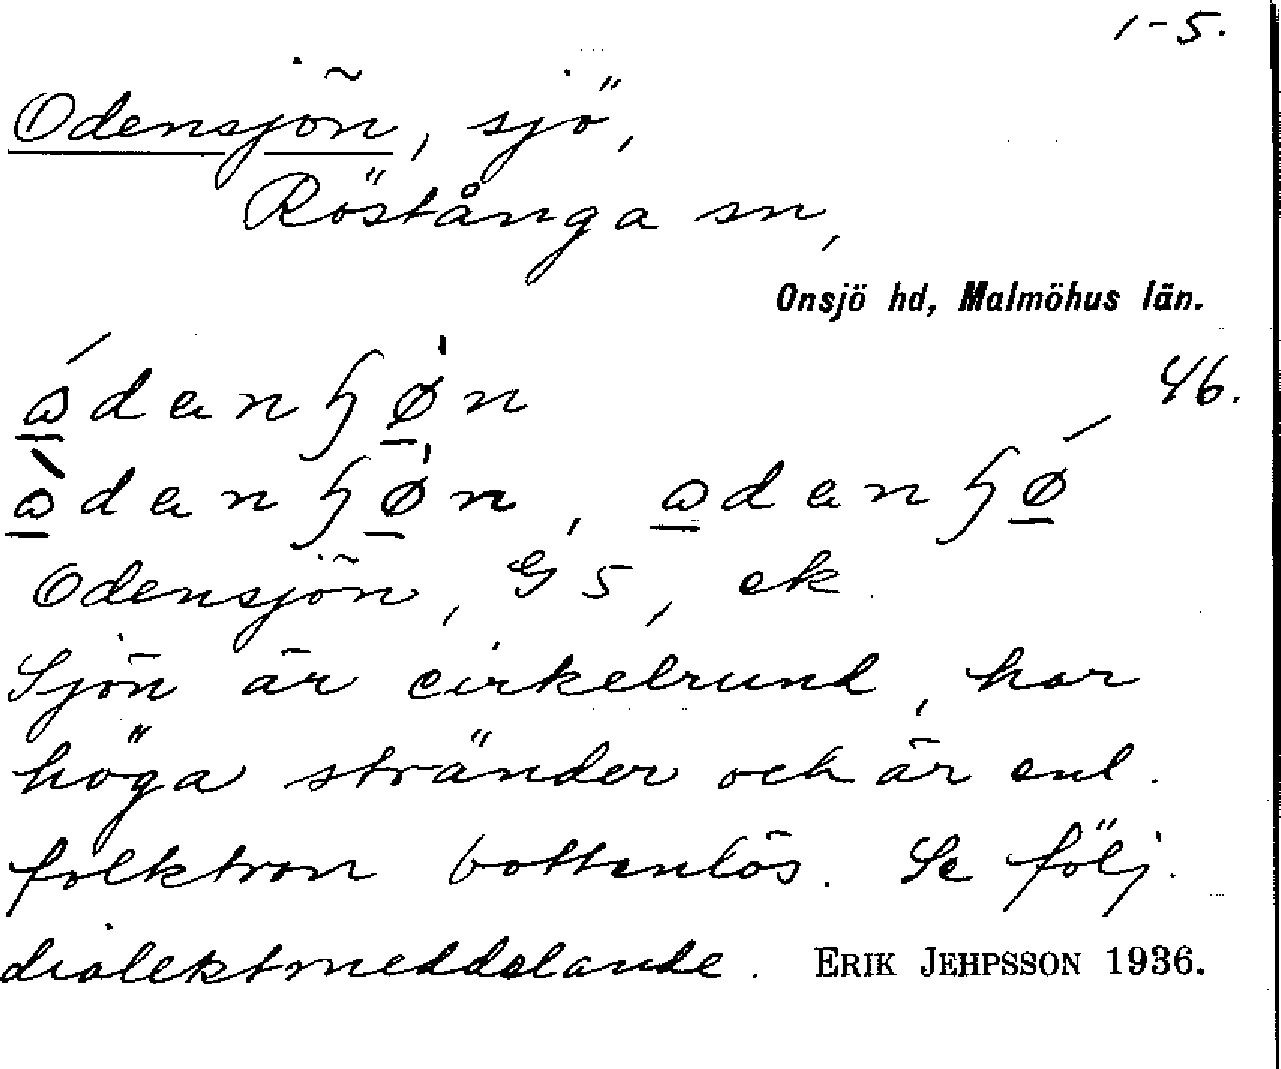 1-5.
Odensjön, sjö,
Röstånga sn,
Onsjö hd, Malmöhus län.
46.
Odensjön, G 5, ek.
Sjön är cirkelrund, har
höga stränder och är enl.
folktron bottenlös. Se följ.
dialektmeddelande. ERIK JEHPSSON 1936.